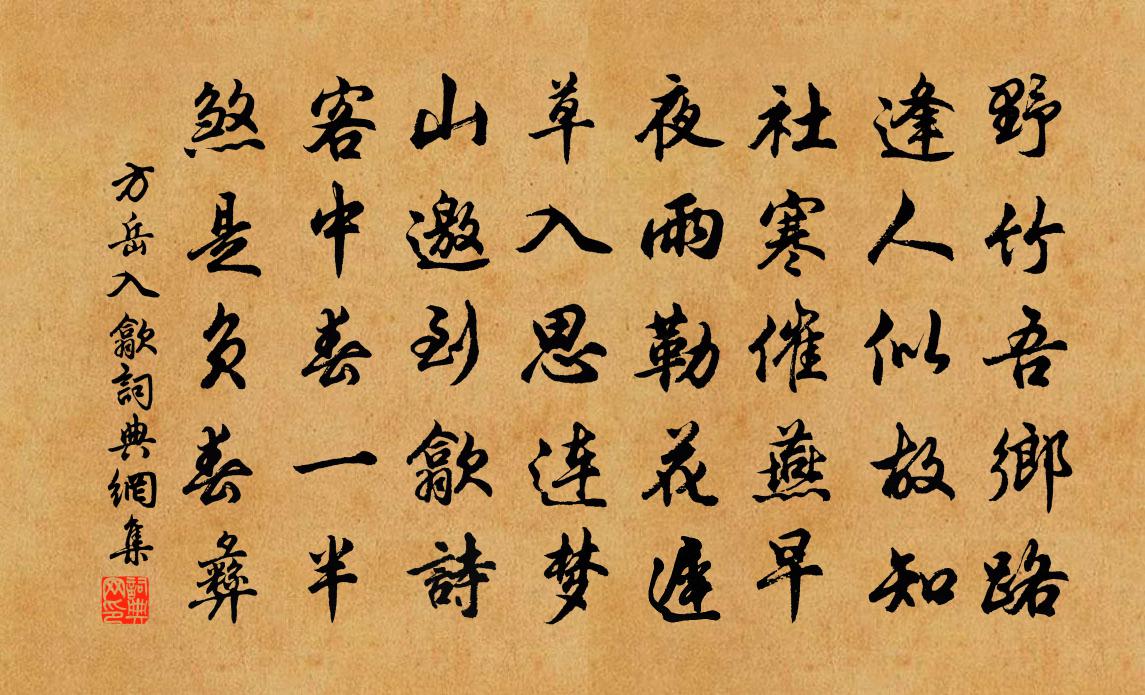 野竹吾鄉路
逢人似故知
社寒催燕早
夜雨勒花遲
草入思连梦
山邀到歙詩
客中春一半
煞是负春彝
方岳入歙詞典網集
詞典网印